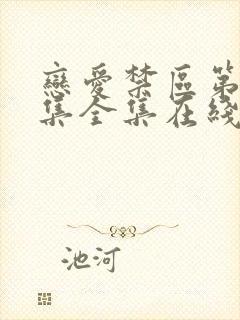 戀愛禁區第
集全集在綫
池河